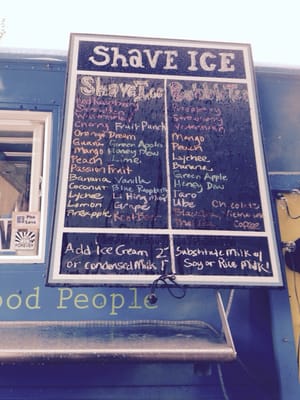 SHAVE ICE
Shave Ice
Strawberry
Watermelon
Cherry Fruit Punch
Orange Dream
Guava Green Apple
Mango Honey Dew
Peach Lime
Passion Fruit
Banana Vanilla
Coconut Blue Raspberry
Lychee Li Hing Mui
Lemon Grape
Pineapple Root Beer
Raspberry
Strawberry
Watermelon
Mango
Peach
Lychee
Banana
Green Apple
Honey Dew
Taro
Ube
Coffee
Add Ice Cream
or condensed Milk
Substitute Milk w/
Soy or Rice Milk!
ood People